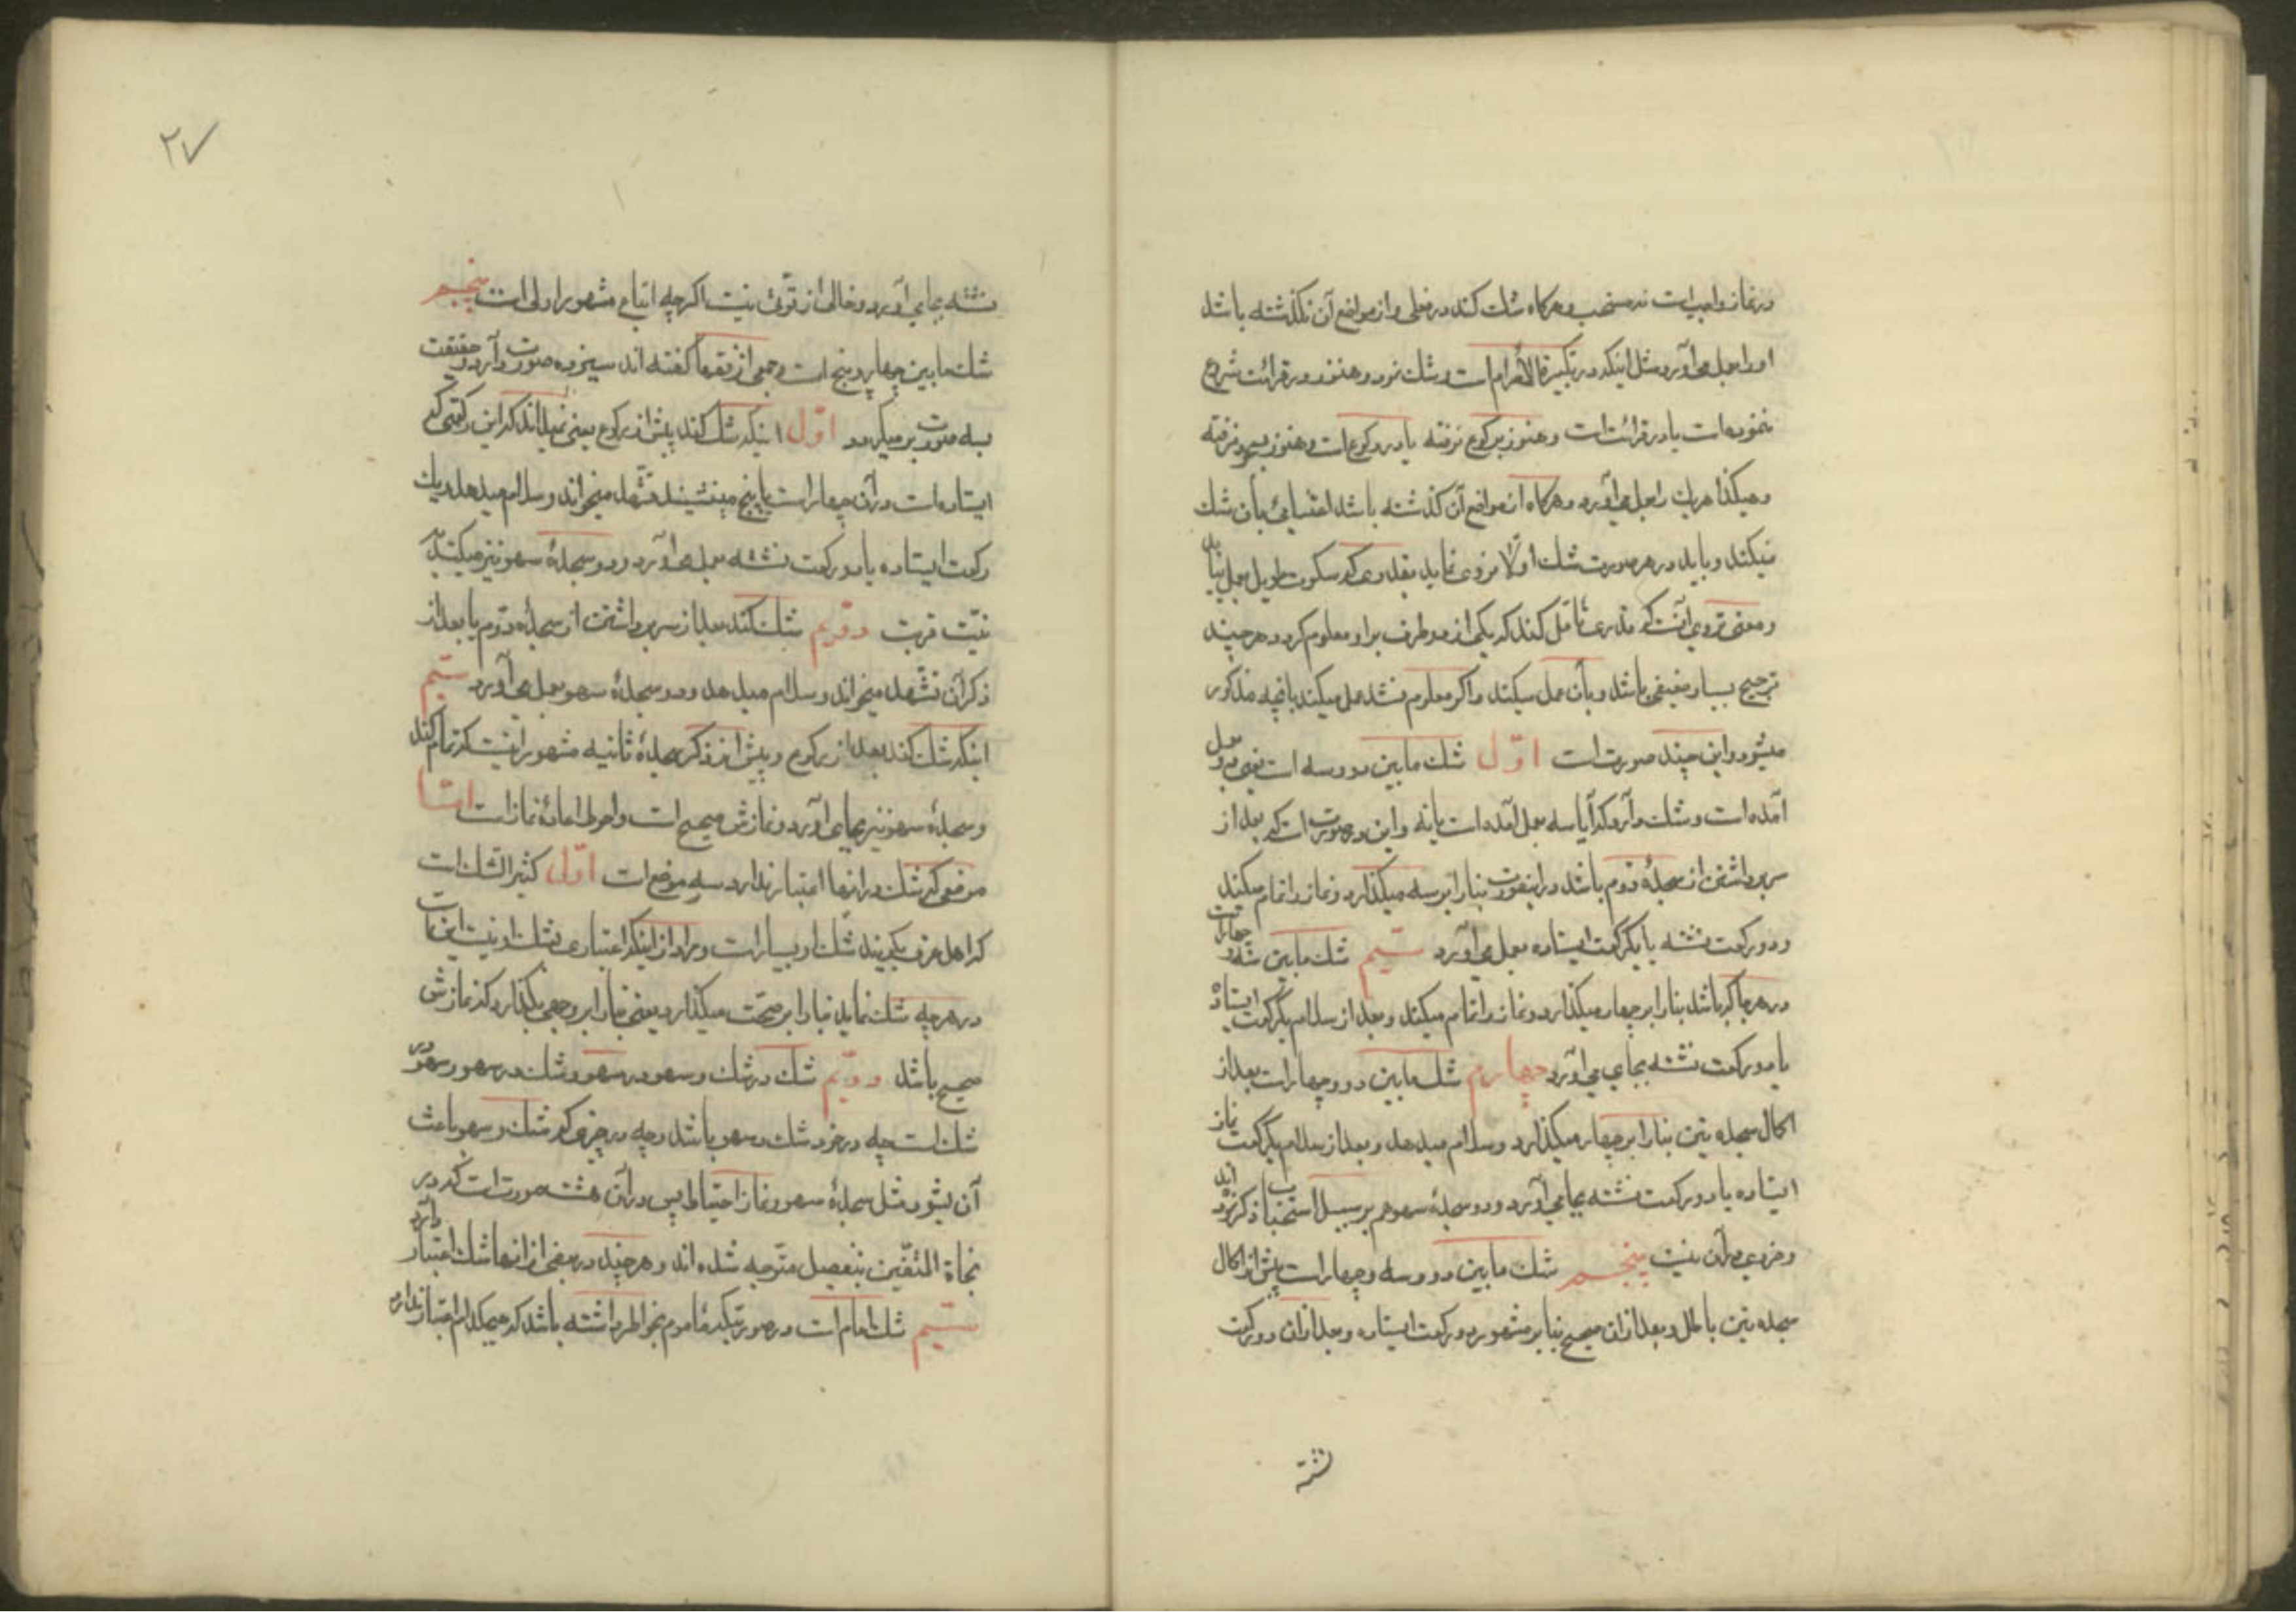 در نماز واجبست نه مستحب و هرگاه شك كند در فعلی و از مواضع آن نگذشته باشد
او را بعمل می آورد مثل اینکه در تکبیرة الاحرام است و شك نمود و هنوز در قرائت شروع
ننموده است یا در قرائت است و هنوز برکوع نرفته یا در رکوع است و هنوز بسجود نرفته
و هکذا هر یك را بعمل می آورد و هرگاه از مواضع آن گذشته باشد اعتنائی بآن شك
نمیکند و باید در هر صورت شك اولا تروی نماید بقدری که سکوت طویل بعمل نیاید
و معنی تروی آنست که قدری تأمل کند که یکی از دو طرف بر او معلوم گردد هر چند
ترجیح بسیار ضعیفی باشد و بآن عمل میکند و اگر معلوم نشد عمل میکند بآنچه مذکور
میشود و این چند صورت است اوّل شك مابین دو و سه است یعنی دو بعمل
آمده است و شك دارد که آیا سه بعمل آمده است یا نه و این در صورتی است که بعد از
سر برداشتن از سجدهٔ دوم باشد در اینصورت بنا را بر سه میگذارد و نماز را تمام میکند
و دو رکعت نشسته یا یکرکعت ایستاده بعمل می آورد سیّم شك مابین سه و چهار است
در هر جا که باشد بنا را بر چهار میگذارد و نماز را تمام میکند و بعد از سلام یکرکعت ایستاده
یا دو رکعت نشسته بجای می آورد چهارم شك مابین دو و چهار است بعد از
اکمال سجدتین بنا را بر چهار میگذارد و سلام میدهد و بعد از سلام یکرکعت نماز
ایستاده یا دو رکعت نشسته بجا می آورد و دو سجدهٔ سهو هم بر سبیل استحباب ذکر کرده اند
و ضرری در آن نیست پنجم شك مابین دو و سه و چهار است پیش از اکمال
سجدتین باطل و بعد از آن صحیح بنا بر مشهور دو رکعت ایستاده و بعد از آن دو رکعت
نشسته
۲۷
نشسته بجای آورد و خالی از قوّتی نیست اگر چه اتباع مشهور اولی است پنجم
شك مابین چهار و پنج است و جمعی از فقها گفته اند سیزده صورت دارد و حقیقت
بسه صورت بر میگردد اوّل اینکه شك کند پیش از رکوع یعنی نمیداند که این رکعتی که
ایستاده است در آن چهار است یا پنج مینشیند تشهد میخواند و سلام میدهد یك
رکعت ایستاده یا دو رکعت نشسته بعمل می آورد و دو سجدهٔ سهو نیز میکند به
نیّت قربت دوّیم شك کند بعد از سر برداشتن از سجدهٔ دوّم یا بعد از
ذکر آن تشهد میخواند و سلام میدهد و دو سجدهٔ سهو بعمل می آورد سیّم
اینکه شك کند بعد از رکوع و پیش از ذکر سجدهٔ ثانیه مشهور اینست که تمام کند
و سجدهٔ سهو نیز بجای آورد و نمازش صحیح است و احوط اعادهٔ نماز است امّا
موضعی که شك در آنها اعتبار ندارد سه موضع است اوّل کثیر الشك است
که اهل عرف بگویند شك او بسیار است و مراد از اینکه اعتباری بشك او نیست اینست
در هر چه شك نماید بنا را بر صحّت میگذارد یعنی بنا را بر وجهی بگذارد که نمازش
صحیح باشد دوّیم شك در شك و سهو در سهو و شك در سهو و سهو در
شك است چه در خود شك و سهو باشد و چه در چیزی که شك و سهو باعث
آن بشود مثل سجدهٔ سهو و نماز احتیاط پس در آن هشت صورت است که در
نجاة المتقین بتفصیل متوجه شده اند و هر چند در بعضی از آنها شك اعتبار دارد
سیّم شك امام است در صورتیکه مأموم بخاطر داشته باشد که هیچکدام اعتبار ندارد